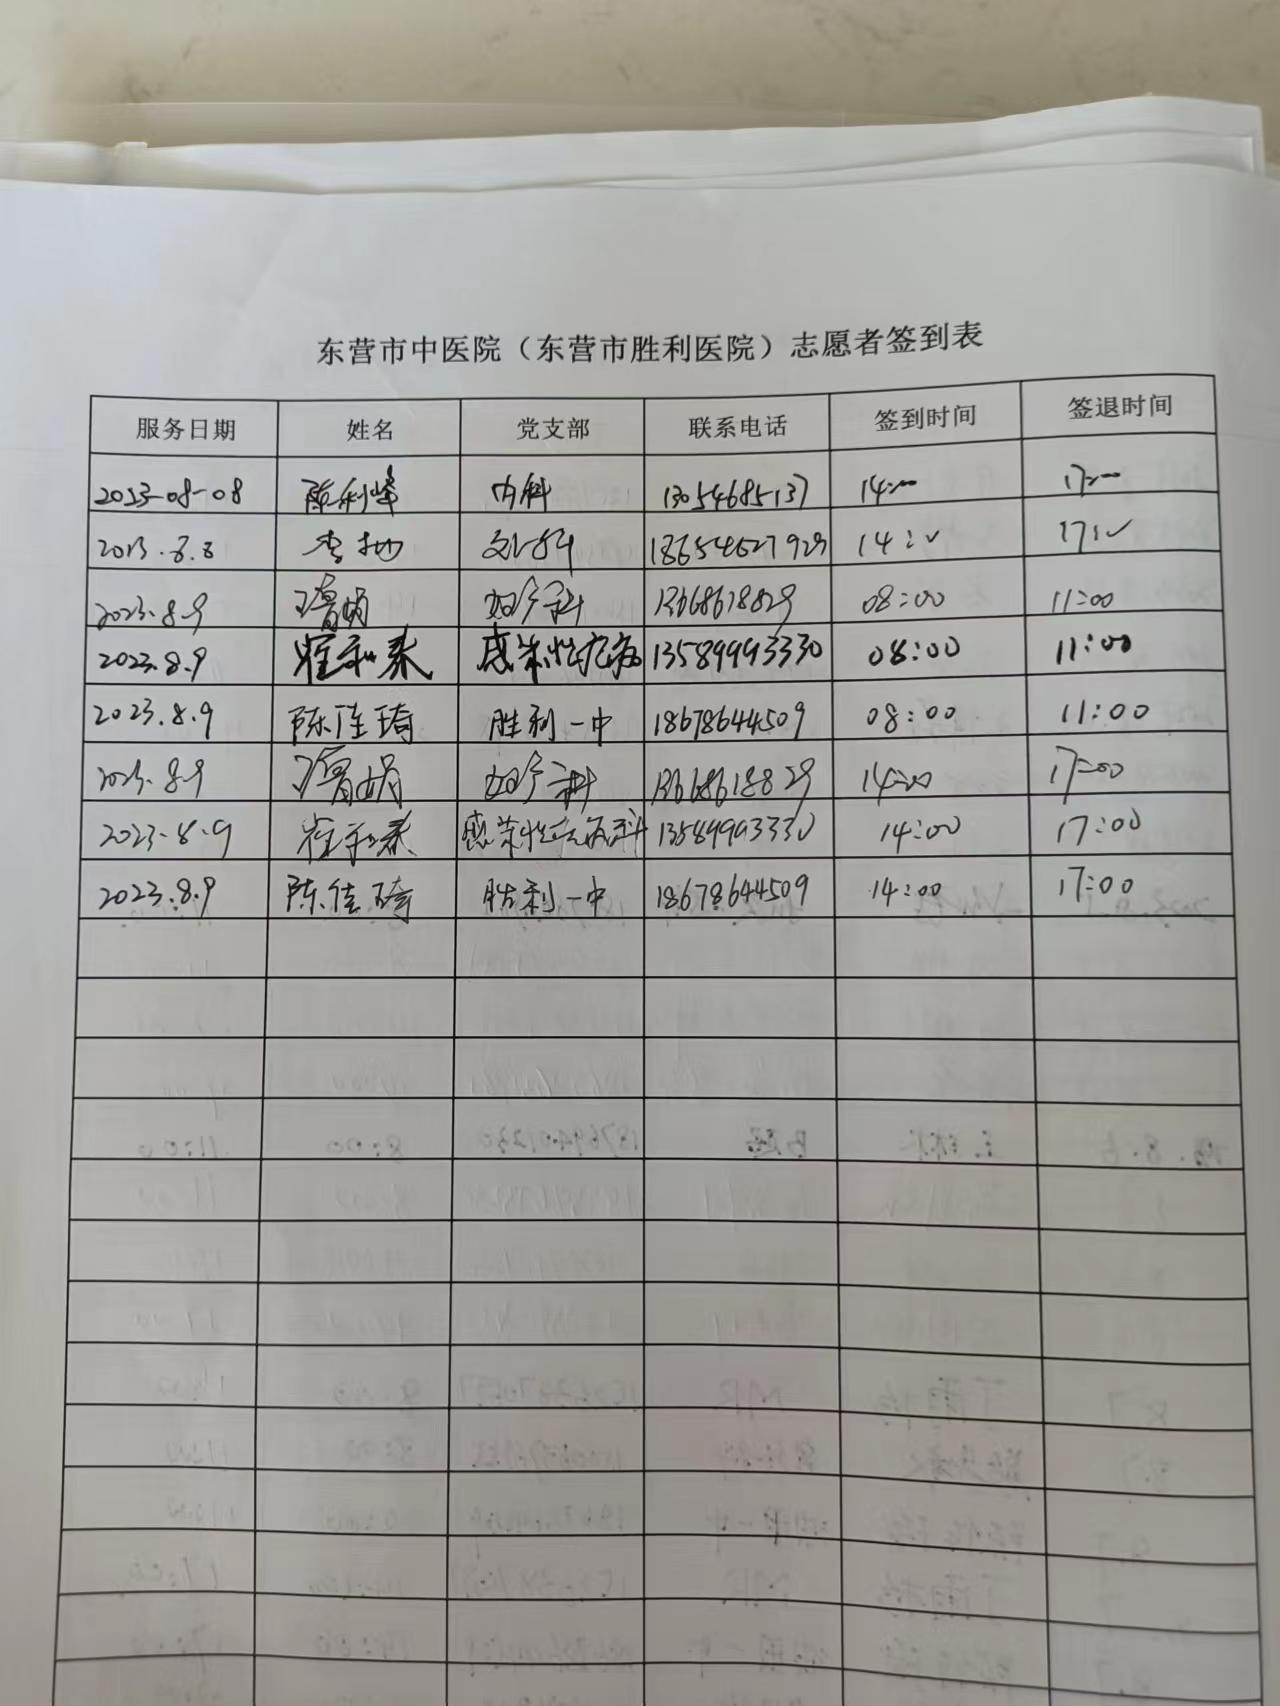 东营市中医院（东营市胜利医院）志愿者签到表
服务日期 姓名 党支部 联系电话 签到时间 签退时间
2023-08-08 陈利峰 内科 13054685137 14:00 17:00
2023.8.8 李 18654627929 14:00 17:00
2023.8.9 妇产科 13668618829 08:00 11:00
2023.8.9 崔和泰 感染性疾病 13589993330 08:00 11:00
2023.8.9 陈佳琦 胜利一中 18678644509 08:00 11:00
2023.8.9 妇产科 13668618829 14:00 17:00
2023.8.9 崔和泰 感染性疾病科 13589993330 14:00 17:00
2023.8.9 陈佳琦 胜利一中 18678644509 14:00 17:00